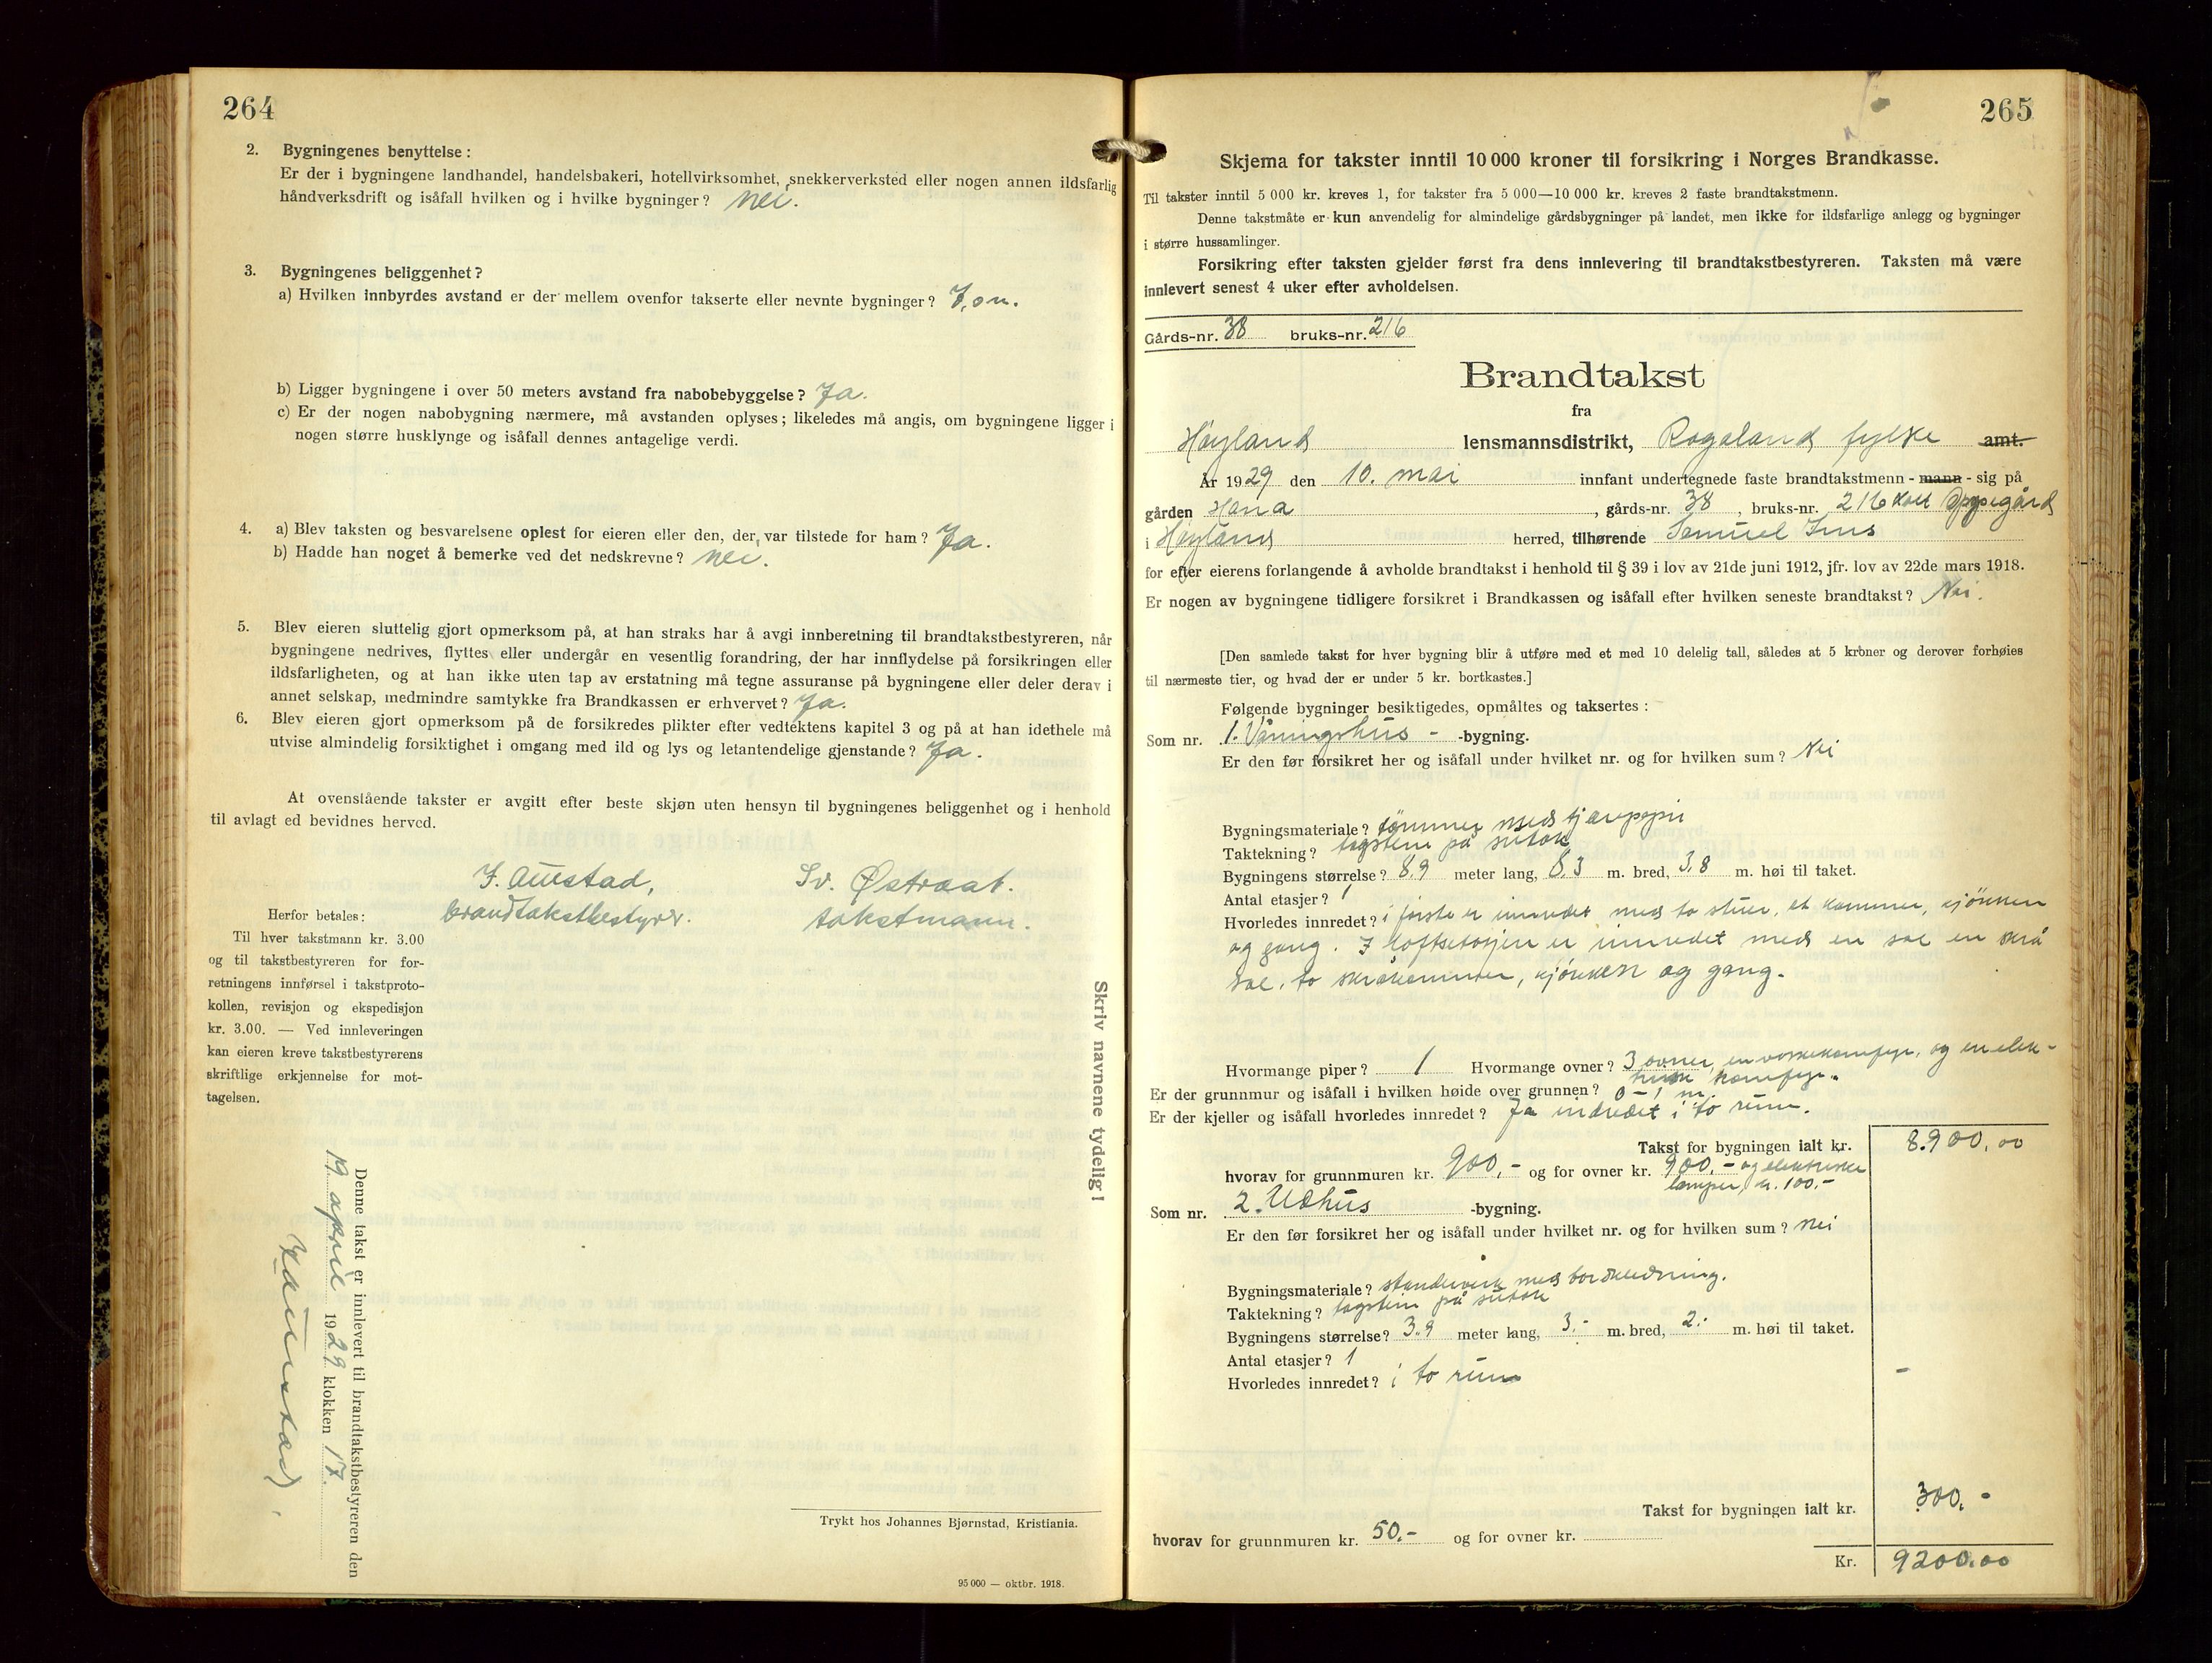 264
2. Bygningenes benyttelse:
Er der i bygningene landhandel, handelsbakeri, hotellvirksomhet, snekkerverksted eller nogen annen ildsfarlig
håndverksdrift og isåfall hvilken og i hvilke bygninger? Nei.
3. Bygningenes beliggenhet?
a) Hvilken innbyrdes avstand er der mellem ovenfor takserte eller nevnte bygninger? 7,0 m.
b) Ligger bygningene i over 50 meters avstand fra nabobebyggelse? Ja.
c) Er der nogen nabobygning nærmere, må avstanden oplyses; likeledes må angis, om bygningene ligger i
nogen større husklynge og isåfall dennes antagelige verdi.
4. a) Blev taksten og besvarelsene oplest for eieren eller den, der var tilstede for ham? Ja.
b) Hadde han noget å bemerke ved det nedskrevne? Nei.
5. Blev eieren sluttelig gjort opmerksom på, at han straks har å avgi innberetning til brandtakstbestyreren, når
bygningene nedrives, flyttes eller undergår en vesentlig forandring, der har innflydelse på forsikringen eller
ildsfarligheten, og at han ikke uten tap av erstatning må tegne assuranse på bygningene eller deler derav i
annet selskap, medmindre samtykke fra Brandkassen er erhvervet? Ja.
6. Blev eieren gjort opmerksom på de forsikredes plikter efter vedtektens kapitel 3 og på at han idethele må
utvise almindelig forsiktighet i omgang med ild og lys og letantendelige gjenstande? Ja.
At ovenstående takster er avgitt efter beste skjøn uten hensyn til bygningenes beliggenhet og i henhold
til avlagt ed bevidnes herved.
J. Auestad, Sv. Østraat.
brandtakstbestyrer. takstmann.
Herfor betales:
Til hver takstmann kr. 3.00
og til takstbestyreren for for-
retningens innførsel i takstproto-
kollen, revisjon og ekspedisjon
kr. 3.00. — Ved innleveringen
kan eieren kreve takstbestyrerens
skriftlige erkjennelse for mot-
tagelsen.
Skriv navnene tydelig!
Denne takst er innlevert til brandtakstbestyreren den
19 april 1929 klokken 17.
J Auestad
Trykt hos Johannes Bjørnstad, Kristiania.
95 000 — oktbr. 1918.
265
Skjema for takster inntil 10 000 kroner til forsikring i Norges Brandkasse.
Til takster inntil 5 000 kr. kreves 1, for takster fra 5 000—10 000 kr. kreves 2 faste brandtakstmenn.
Denne takstmåte er kun anvendelig for almindelige gårdsbygninger på landet, men ikke for ildsfarlige anlegg og bygninger
i større hussamlinger.
Forsikring efter taksten gjelder først fra dens innlevering til brandtakstbestyreren. Taksten må være
innlevert senest 4 uker efter avholdelsen.
Gårds-nr. 38 bruks-nr. 216
Brandtakst
fra
Høyland lensmannsdistrikt, Rogaland fylke amt.
År 1929 den 10. mai innfant undertegnede faste brandtakstmenn - mann - sig på
gården Hana, gårds-nr. 38, bruks-nr. 216 kalt
i Høyland herred, tilhørende Samuel
for efter eierens forlangende å avholde brandtakst i henhold til § 39 i lov av 21de juni 1912, jfr. lov av 22de mars 1918.
Er nogen av bygningene tidligere forsikret i Brandkassen og isåfall efter hvilken seneste brandtakst? Nei.
[Den samlede takst for hver bygning blir å utføre med et med 10 delelig tall, således at 5 kroner og derover forhøies
til nærmeste tier, og hvad der er under 5 kr. bortkastes.]
Følgende bygninger besiktigedes, opmåltes og taksertes:
Som nr. 1. Våningshus - -bygning.
Er den før forsikret her og isåfall under hvilket nr. og for hvilken sum? Nei
Bygningsmateriale? tømmer med tjærepapir
Taktekning? tagstein på sutak
Bygningens størrelse? 8,9 meter lang, 8,3 m. bred, 3,8 m. høi til taket.
Antal etasjer? 1
Hvorledes innredet? i første er innredet med to stuer, et kammer, kjøkken
og gang. I loftsetasjen er innredet med en sal en skrå
sal, to skråkammer, kjøkken og gang.
Hvormange piper? 1 Hvormange ovner? 3 ovner, en vaskekomfyr, og en elek-
trisk komfyr.
Er der grunnmur og isåfall i hvilken høide over grunnen? 0-1 m.
Er der kjeller og isåfall hvorledes innredet? Ja indredet i to rum.
Takst for bygningen ialt kr. 8.900,00
hvorav for grunnmuren kr. 900,- og for ovner kr. 900,- og elektriske
lamper, kr. 100,-
Som nr. 2. Udhus -bygning.
Er den før forsikret her og isåfall under hvilket nr. og for hvilken sum? Nei
Bygningsmateriale? standerverk med bordkledning.
Taktekning? tagstein på sutak
Bygningens størrelse? 3,9 meter lang, 3,- m. bred, 2,- m. høi til taket.
Antal etasjer? 1
Hvorledes innredet? i to rum
Takst for bygningen ialt kr. 300,-
hvorav for grunnmuren kr. 50,- og for ovner kr.
Kr. 9200,00